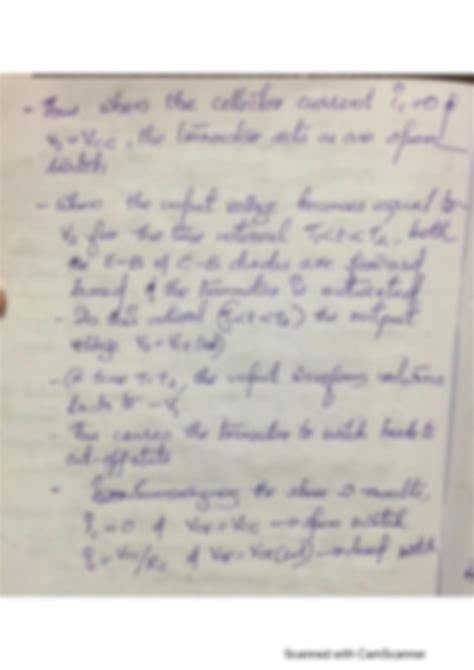 - Thus when the collector current Ic = 0 &
V0 = Vcc, the transistor acts as an open
switch
- When the input voltage becomes equal to
V2 for the time interval T1 < t < T2, both
the E-B & C-B diodes are forward
biased & the transistor is saturated
- In this interval (T1 < t < T2) the output
voltage V0 = VCE(sat)
- @ time T = T2, the input waveform returns
back to -V1
- This causes the transistor to switch back to
cut-off state
- the above results,
Ic = 0 & VCE = VCC → open switch
Ic = VCC/RC & VCE = VCE(sat) → closed switch
Scanned with CamScanner